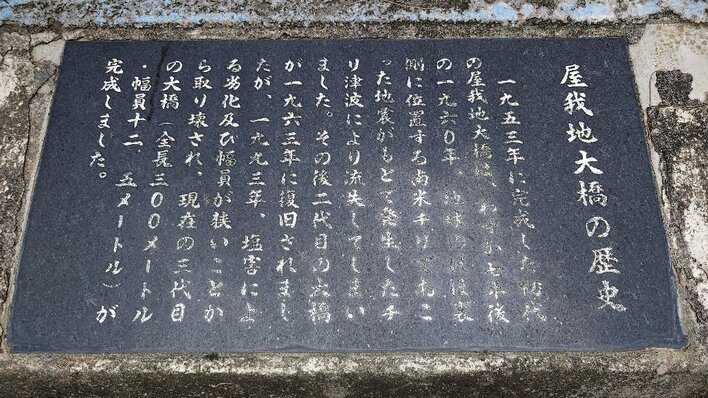 屋我地大橋の歴史
一九五三年に完成した初代
の屋我地大橋は、わずか七年後
の一九六〇年、地球のほぼ裏
側に位置する南米チリでおこ
った地震がもとで発生したチ
リ津波により流失してしまい
ました。その後二代目の大橋
が一九六三年に復旧されまし
たが、一九九三年、塩害によ
る劣化及び幅員が狭いことか
ら取り壊され、現在の三代目
の大橋(全長三〇〇メートル
・幅員十二.五メートル)が
完成しました。